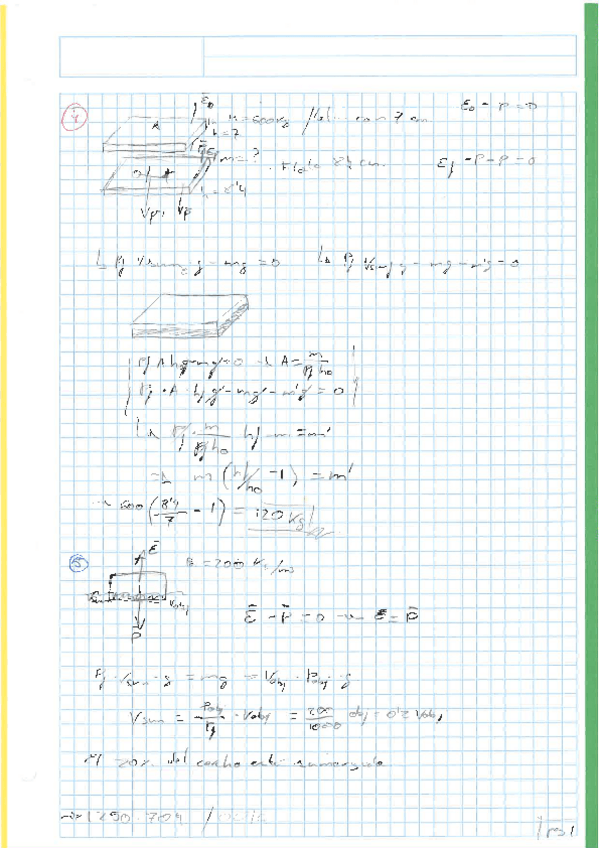 4
E₀ m = 600 kg flota con 7 cm E₀ - P = 0
A h = 7
m = ? flota 8'4 cm Ef - P - P = 0
h = 8'4
↳ ρf Vsum g - mg = 0 ↳ ρf Vsum g - mg - m'g = 0
ρf A h₀ g - mg = 0 → A = m/(ρf h₀)
ρf · A · hf g - mg - m'g = 0
↳ ρf · m/(ρf h₀) hf - m = m'
→ m (hf/h₀ - 1) = m'
→ 600 (8'4/7 - 1) = 120 kg
5
E = 200 kg/m
Vobj
E - P = 0 → E = P
P
ρf · Vsum · g = mg = Vobj · ρobj · g
Vsum = ρobj/ρf · Vobj = 200/1000 obj = 0'2 Vobj
20% del corcho está sumergido
1290.704 /
pg 1